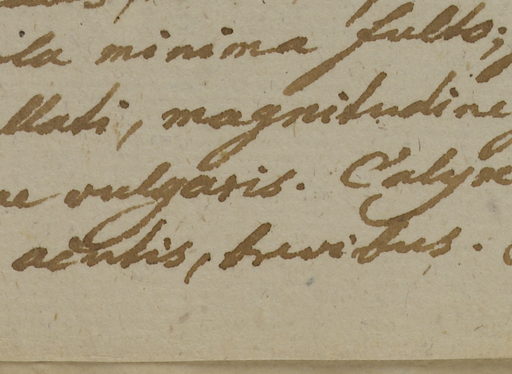 ula minima fulto;
llati, magnitudine
ae vulgaris. Calyx
acutis, brevibus.